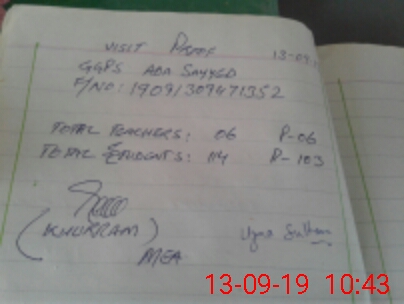 VISIT PROOF 13-09-
GGPS ADA SAYYED
F/NO: 19091309471352
TOTAL TEACHERS: 06 P-06
TOTAL STUDENTS: 114 P-103
(KHURRAM)
MEA
13-09-19 10:43